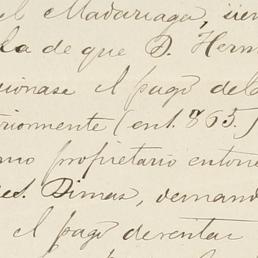 el Madariaga,
la de que D. Herm
ionase el pago del
riormente (ent. 865)
mo propietario enton
Dimas, demand
el pago de rentas